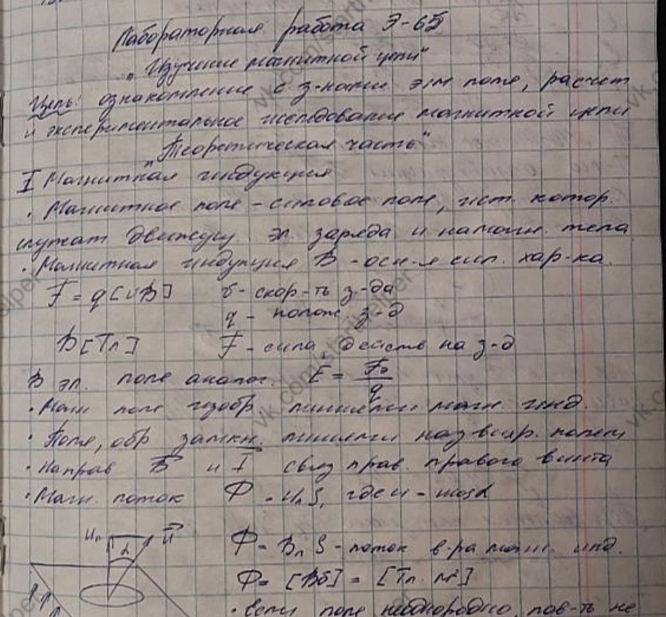 Лабораторная работа Э-65
"Изучение магнитной цепи"
Цель: ознакомление с з-нами эл.м поле, расчет
и экспериментальное исследование магнитной цепи
"Теоретическая часть"
I Магнитная индукция
• Магнитное поле - силовое поле, ист. котор.
служат движущ. эл. заряда и намагн. тела
• Магнитная индукция B - осн-я сил. хар-ка.
F = q[υB] υ - скор-ть з-да
q - полож. з-д
B [Тл] F - сила, действ на з-д
В эл. поле аналог. E = F/q
• Магн поле изобр линиями магн. инд.
• Поле, обр замкн. линиями наз вихр. полем
• Направ B и I связ прав. правого винта
• Магн. поток Ф = uₙS, где u - cosα
uₙ α u
Ф = Bₙ S - поток в-ра магн. инд.
Ф = [Вб] = [Тл. м²]
• Если поле неоднородно, пов-ть не